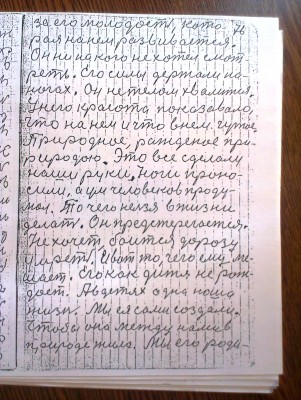 за его молодость, кото
рая на нем развивается.
Он ни на кого не хотел смот
реть. Его силы держали на
ногах. Он не телом хвалится,
У него красота показавало,
что на нем и что в нем. чутое,
Природное, рожденое при-
риродою. Это все сделали
наши руки. ноги прино-
сили, а ум человеков проду-
мал. То чего нельзя в жизни
делать. Он предстерегается.
Не хочет, боится дорогу
умереть. И вот то, чего ему ме-
шает. Его как дитя не рож-
дает. А в детях одна наша
жизнь. Мы ея сами создали.
Чтобы она между нами в
природе жила. Мы его роди-